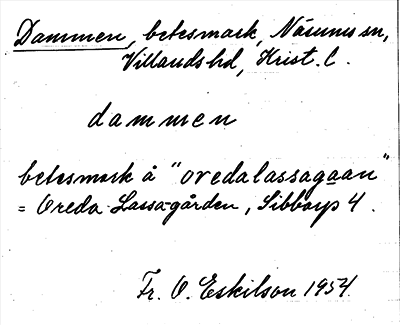 Dammen, betesmark, Näsums sn,
Villands hd, Krist. l.
dammen
betesmark å "ovedalassagaan"
= Oreda Lassa-gården, Sibbarp 4.
Fr. O. Eskilson 1954